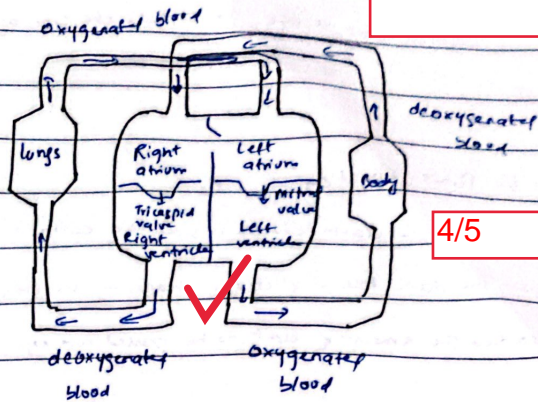 oxygenated blood
deoxygenated
blood
Lungs
Right
atrium
Left
atrium
Body
Tricuspid
valve
Mitral
valve
Right
ventricle
Left
ventricle
4/5
deoxygenated
blood
oxygenated
blood